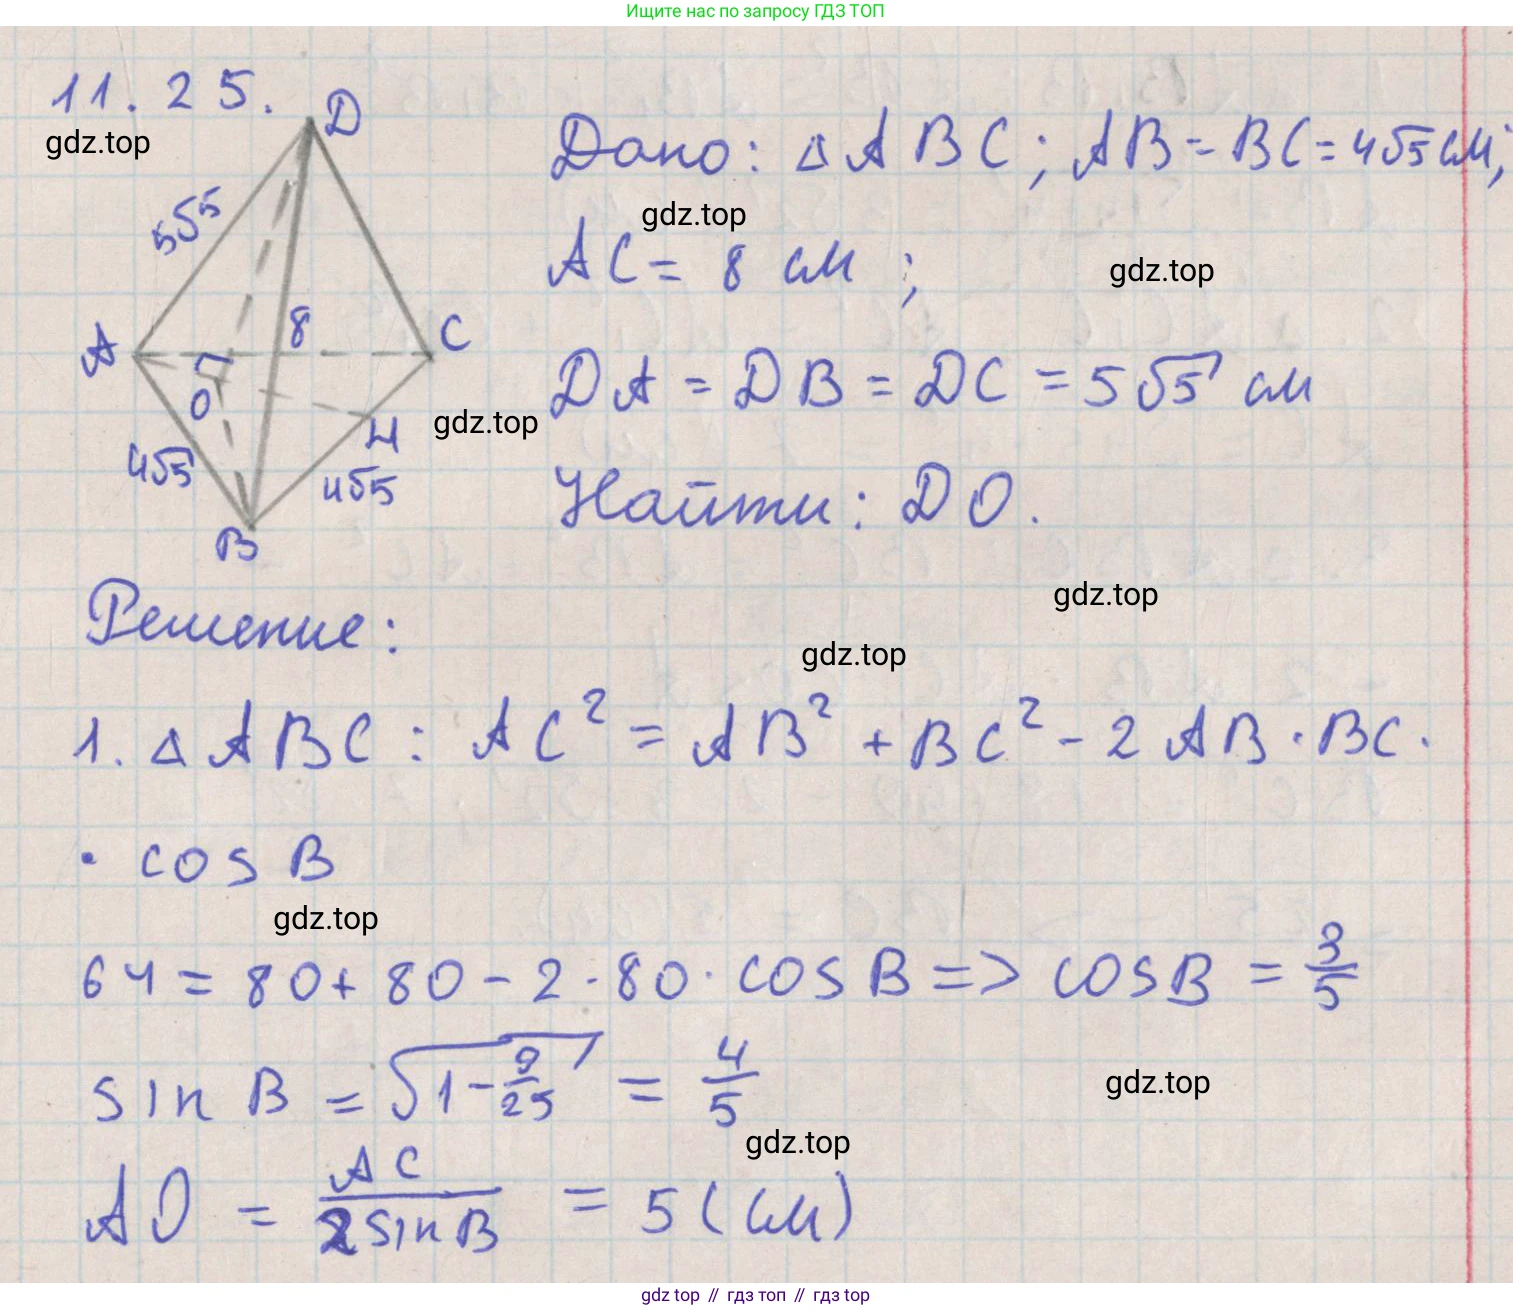 Ищите нас по запросу ГДЗ ТОП
11.25.
D
gdz.top
Дано: △ABC; AB = BC = 4√5 см;
5√5
gdz.top
AC = 8 см;
gdz.top
A
8
C
DA = DB = DC = 5√5 см
O
gdz.top
H
4√5
4√5
Найти: DO.
B
gdz.top
Решение:
gdz.top
1. △ABC: AC² = AB² + BC² - 2AB · BC ·
· cos B
gdz.top
64 = 80 + 80 - 2 · 80 · cos B => cos B = 3/5
sin B = √(1 - 9/25) = 4/5
gdz.top
gdz.top
AO = AC/(2 sin B) = 5 (см)
gdz.top // гдз топ // гдз top